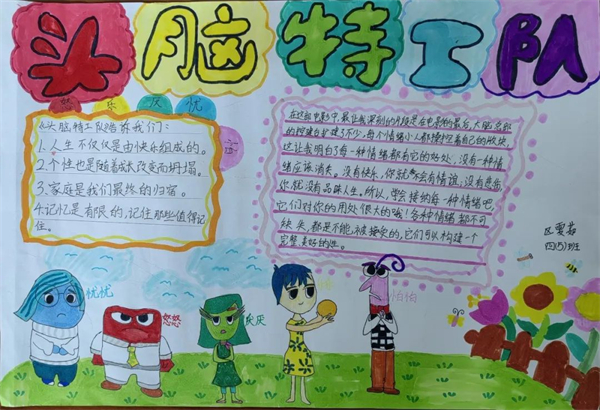 头脑特工队
乐 厌 忧
《头脑特工队》告诉我们：
1.人生不仅仅是由快乐组成的。
2.个性也是随着成长改变而坍塌。
3.家庭是我们最终的归宿。
4.记忆是有限的,记住那些值得记
住。
在这部电影中,最让我深刻的片段是在电影的最后,大脑总部
的按键台扩建了不少,每个情绪小人都操控着自己的
这让我明白了每一种情绪都有它的好处,没有一种情
绪应该消失,没有快乐,你就会有情谊,没有悲伤,
你就没有品味人生。所以,学会接纳每一种情绪吧,
它们对你的用处很大的哦!各种情绪都不可
缺失,都是不能被接受的,它们可以构建一个
完整美好的
区
四(5)班
忧忧
怒怒
厌厌
怕怕